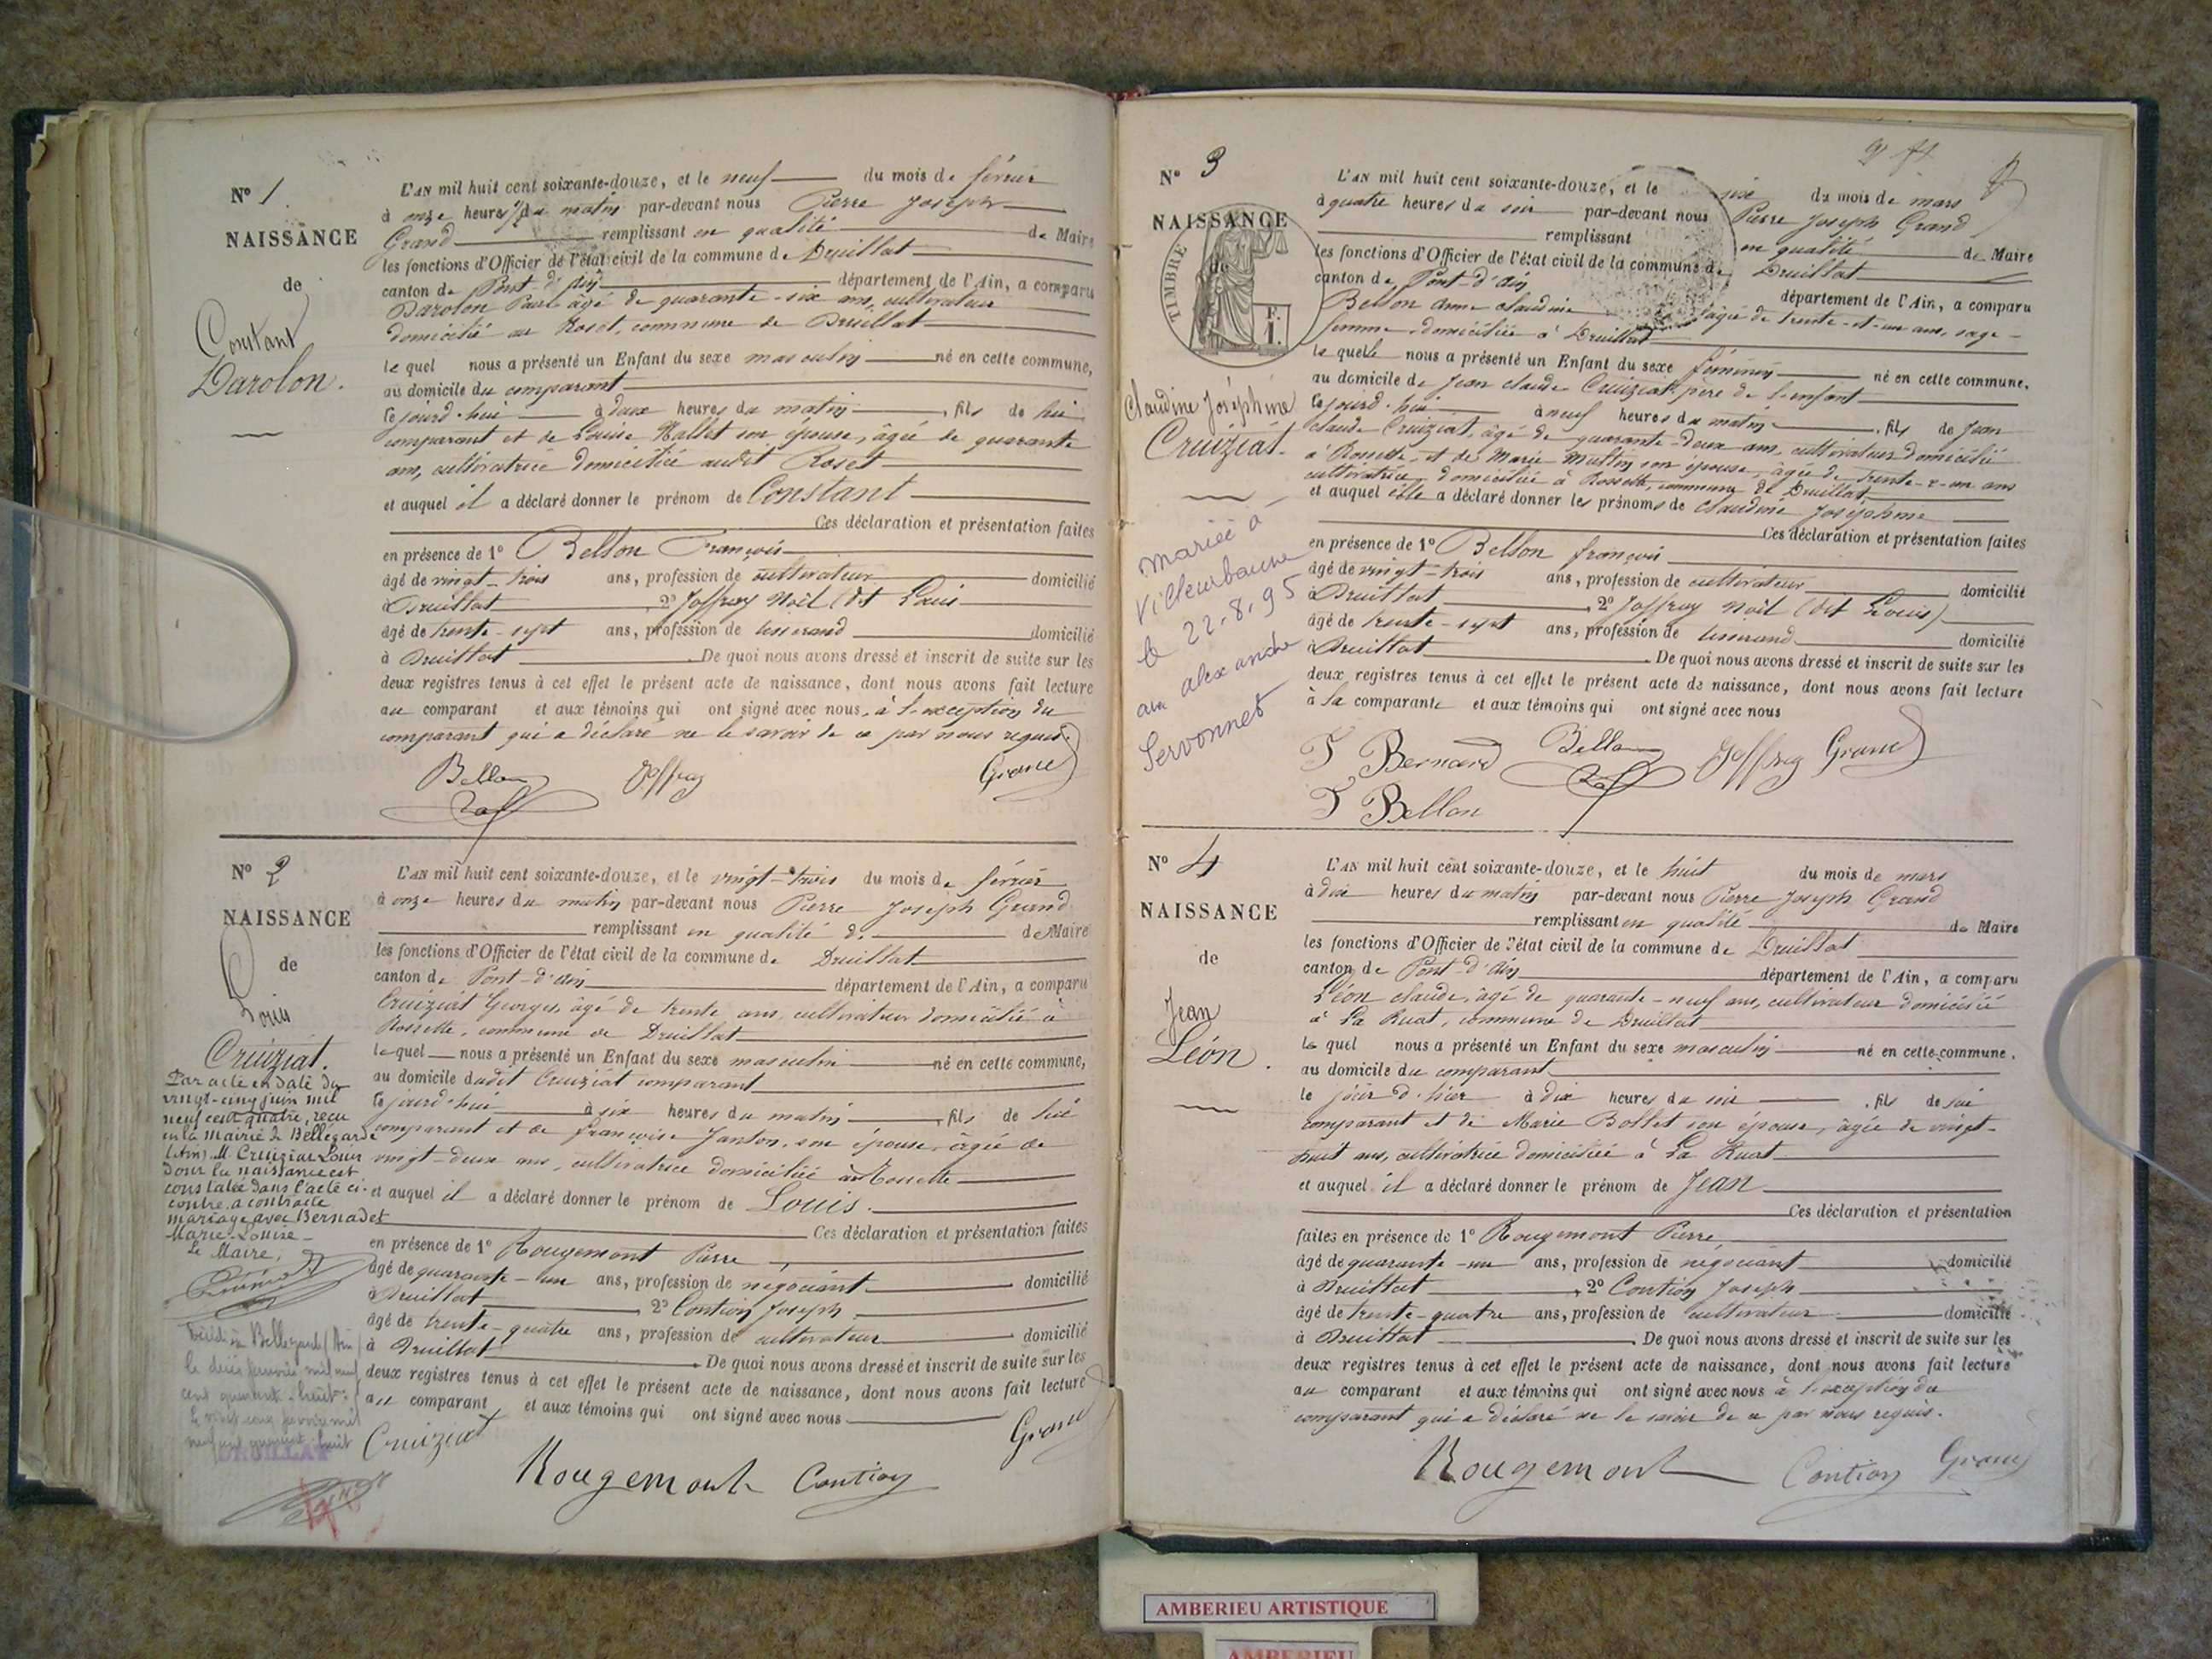 N° 1.
NAISSANCE
de
Constant
Darolon.
L'AN mil huit cent soixante-douze, et le neuf du mois de février
à onze heures du matin par-devant nous Pierre Joseph
Grand remplissant en qualité de Maire
les fonctions d'Officier de l'état civil de la commune de Druillat
canton de Pont-d'Ain département de l'Ain, a comparu
Darolon Paul âgé de quarante-six ans, cultivateur
domicilié au Roset, commune de Druillat
le quel nous a présenté un Enfant du sexe masculin né en cette commune,
au domicile du comparant
cejourd'hui à deux heures du matin, fils de lui
comparant et de Louise Mallet son épouse, âgée de quarante
ans, cultivatrice domiciliée audit Roset
et auquel il a déclaré donner le prénom de Constant
Ces déclaration et présentation faites
en présence de 1° Bellon François
âgé de vingt-trois ans, profession de cultivateur domicilié
à Druillat, 2° Joffray Noël (dit Louis
âgé de trente-sept ans, profession de tisserand domicilié
à Druillat. De quoi nous avons dressé et inscrit de suite sur les
deux registres tenus à cet effet le présent acte de naissance, dont nous avons fait lecture
au comparant et aux témoins qui ont signé avec nous, à l'exception du
comparant qui a déclaré ne le savoir de ce par nous requis.
Bellon Joffray Grand
N° 2
NAISSANCE
de
Louis
Cruiziat.
Par acte en date du
vingt-cinq juin mil
neuf cent quatre, reçu
en la Mairie de Bellegarde
(Ain) M. Cruiziat Louis
dont la naissance est
constatée dans l'acte ci-
contre, a contracté
mariage avec Bernadet
Marie-Louise
Le Maire,
L'AN mil huit cent soixante-douze, et le vingt-trois du mois de février
à onze heures du matin par-devant nous Pierre Joseph Grand
remplissant en qualité de de Maire
les fonctions d'Officier de l'état civil de la commune de Druillat
canton de Pont-d'Ain département de l'Ain, a comparu
Cruiziat Georges, âgé de trente ans, cultivateur domicilié à
Rossette, commune de Druillat
le quel nous a présenté un Enfant du sexe masculin né en cette commune,
au domicile dudit Cruiziat comparant
cejourd'hui à six heures du matin, fils de lui
comparant et de Françoise Janton, son épouse, âgée de
vingt-deux ans, cultivatrice domiciliée à Rossette
et auquel il a déclaré donner le prénom de Louis.
Ces déclaration et présentation faites
en présence de 1° Rougemont Pierre
âgé de quarante-un ans, profession de négociant domicilié
à Druillat, 2° Contion Joseph
âgé de trente-quatre ans, profession de cultivateur domicilié
à Druillat. De quoi nous avons dressé et inscrit de suite sur les
deux registres tenus à cet effet le présent acte de naissance, dont nous avons fait lecture
au comparant et aux témoins qui ont signé avec nous
Cruiziat Rougemont Contion Grand
DRUILLAT
N° 3
NAISSANCE
de
TIMBRE
F.
1.
Claudine Joséphine
Cruiziat.
mariée à
Villeurbanne
le 22.8.95
avec alexandre
Servonnet
L'AN mil huit cent soixante-douze, et le six du mois de mars
à quatre heures du soir par-devant nous Pierre Joseph Grand
remplissant en qualité de Maire
les fonctions d'Officier de l'état civil de la commune de Druillat
canton de Pont-d'Ain département de l'Ain, a comparu
Bellon Anne Claudine âgée de trente-et-un ans, sage-
femme domiciliée à Druillat
le quelle nous a présenté un Enfant du sexe féminin né en cette commune,
au domicile de Jean Claude Cruiziat père de l'enfant
cejourd'hui à neuf heures du matin, fils de Jean
Claude Cruiziat, âgé de quarante-deux ans, cultivateur domicilié
à Rossette, et de Marie son épouse, âgée de trente-e-un ans
cultivatrice, domiciliée à Rossette, commune de Druillat
et auquel elle a déclaré donner les prénoms de Claudine Joséphine
Ces déclaration et présentation faites
en présence de 1° Bellon François
âgé de vingt-trois ans, profession de cultivateur domicilié
à Druillat, 2° Joffray Noël (dit Louis)
âgé de trente-sept ans, profession de tisserand domicilié
à Druillat. De quoi nous avons dressé et inscrit de suite sur les
deux registres tenus à cet effet le présent acte de naissance, dont nous avons fait lecture
à la comparante et aux témoins qui ont signé avec nous
Bernard Bellon Joffray Grand
Bellon
N° 4
NAISSANCE
de
Jean
Léon.
L'AN mil huit cent soixante-douze, et le huit du mois de mars
à dix heures du matin par-devant nous Pierre Joseph Grand
remplissant en qualité de Maire
les fonctions d'Officier de l'état civil de la commune de Druillat
canton de Pont-d'Ain département de l'Ain, a comparu
Léon Claude, âgé de quarante-neuf ans, cultivateur domicilié
à La Ruat, commune de Druillat
le quel nous a présenté un Enfant du sexe masculin né en cette commune,
au domicile du comparant
le jour d'hier à dix heures du soir, fils de lui
comparant et de Marie Bollet son épouse, âgée de vingt-
huit ans, cultivatrice domiciliée à La Ruat
et auquel il a déclaré donner le prénom de Jean
Ces déclaration et présentation
faites en présence de 1° Rougemont Pierre
âgé de quarante-un ans, profession de négociant domicilié
à Druillat, 2° Contion Joseph
âgé de trente-quatre ans, profession de cultivateur domicilié
à Druillat. De quoi nous avons dressé et inscrit de suite sur les
deux registres tenus à cet effet le présent acte de naissance, dont nous avons fait lecture
au comparant et aux témoins qui ont signé avec nous à l'exception du
comparant qui a déclaré ne le savoir de ce par nous requis.
Rougemont Contion Grand
AMBERIEU ARTISTIQUE
AMBERIEU